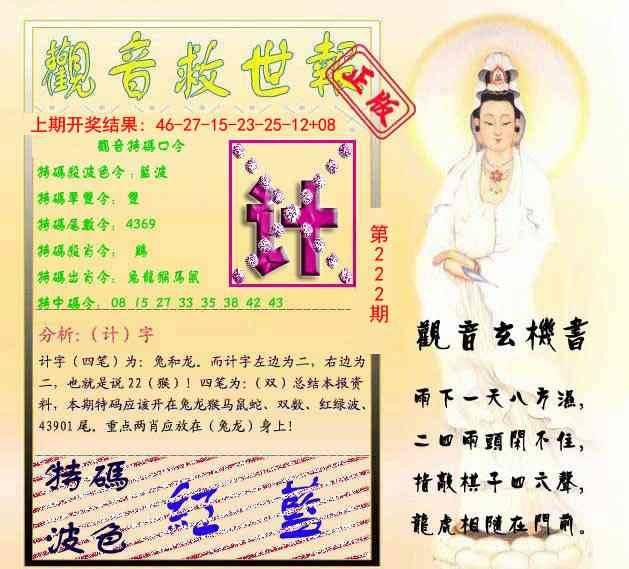 觀音救世報
正版
上期开奖结果：46-27-15-23-25-12+08
觀音特碼口令
特碼殺波色令：藍波
特碼單雙令：雙
特碼尾數令：4369
特碼殺肖令：鷄
特碼出肖令：兔龍猴馬鼠
特中碼令：08 15 27 33 35 38 42 43
计
第222期
分析:（计）字
计字（四笔）为：兔和龙。而计字左边为二，右边为
二，也就是说22（猴）！四笔为：（双）总结本报资
料，本期特码应该开在兔龙猴马鼠蛇、双数、红绿波、
43901尾。重点两肖应放在（兔龙）身上！
特碼
波色
紅 藍
觀音玄機書
雨下一天八方濕，
二四兩頭閑不住，
指敲棋子四六聲，
龍虎相隨在門前。